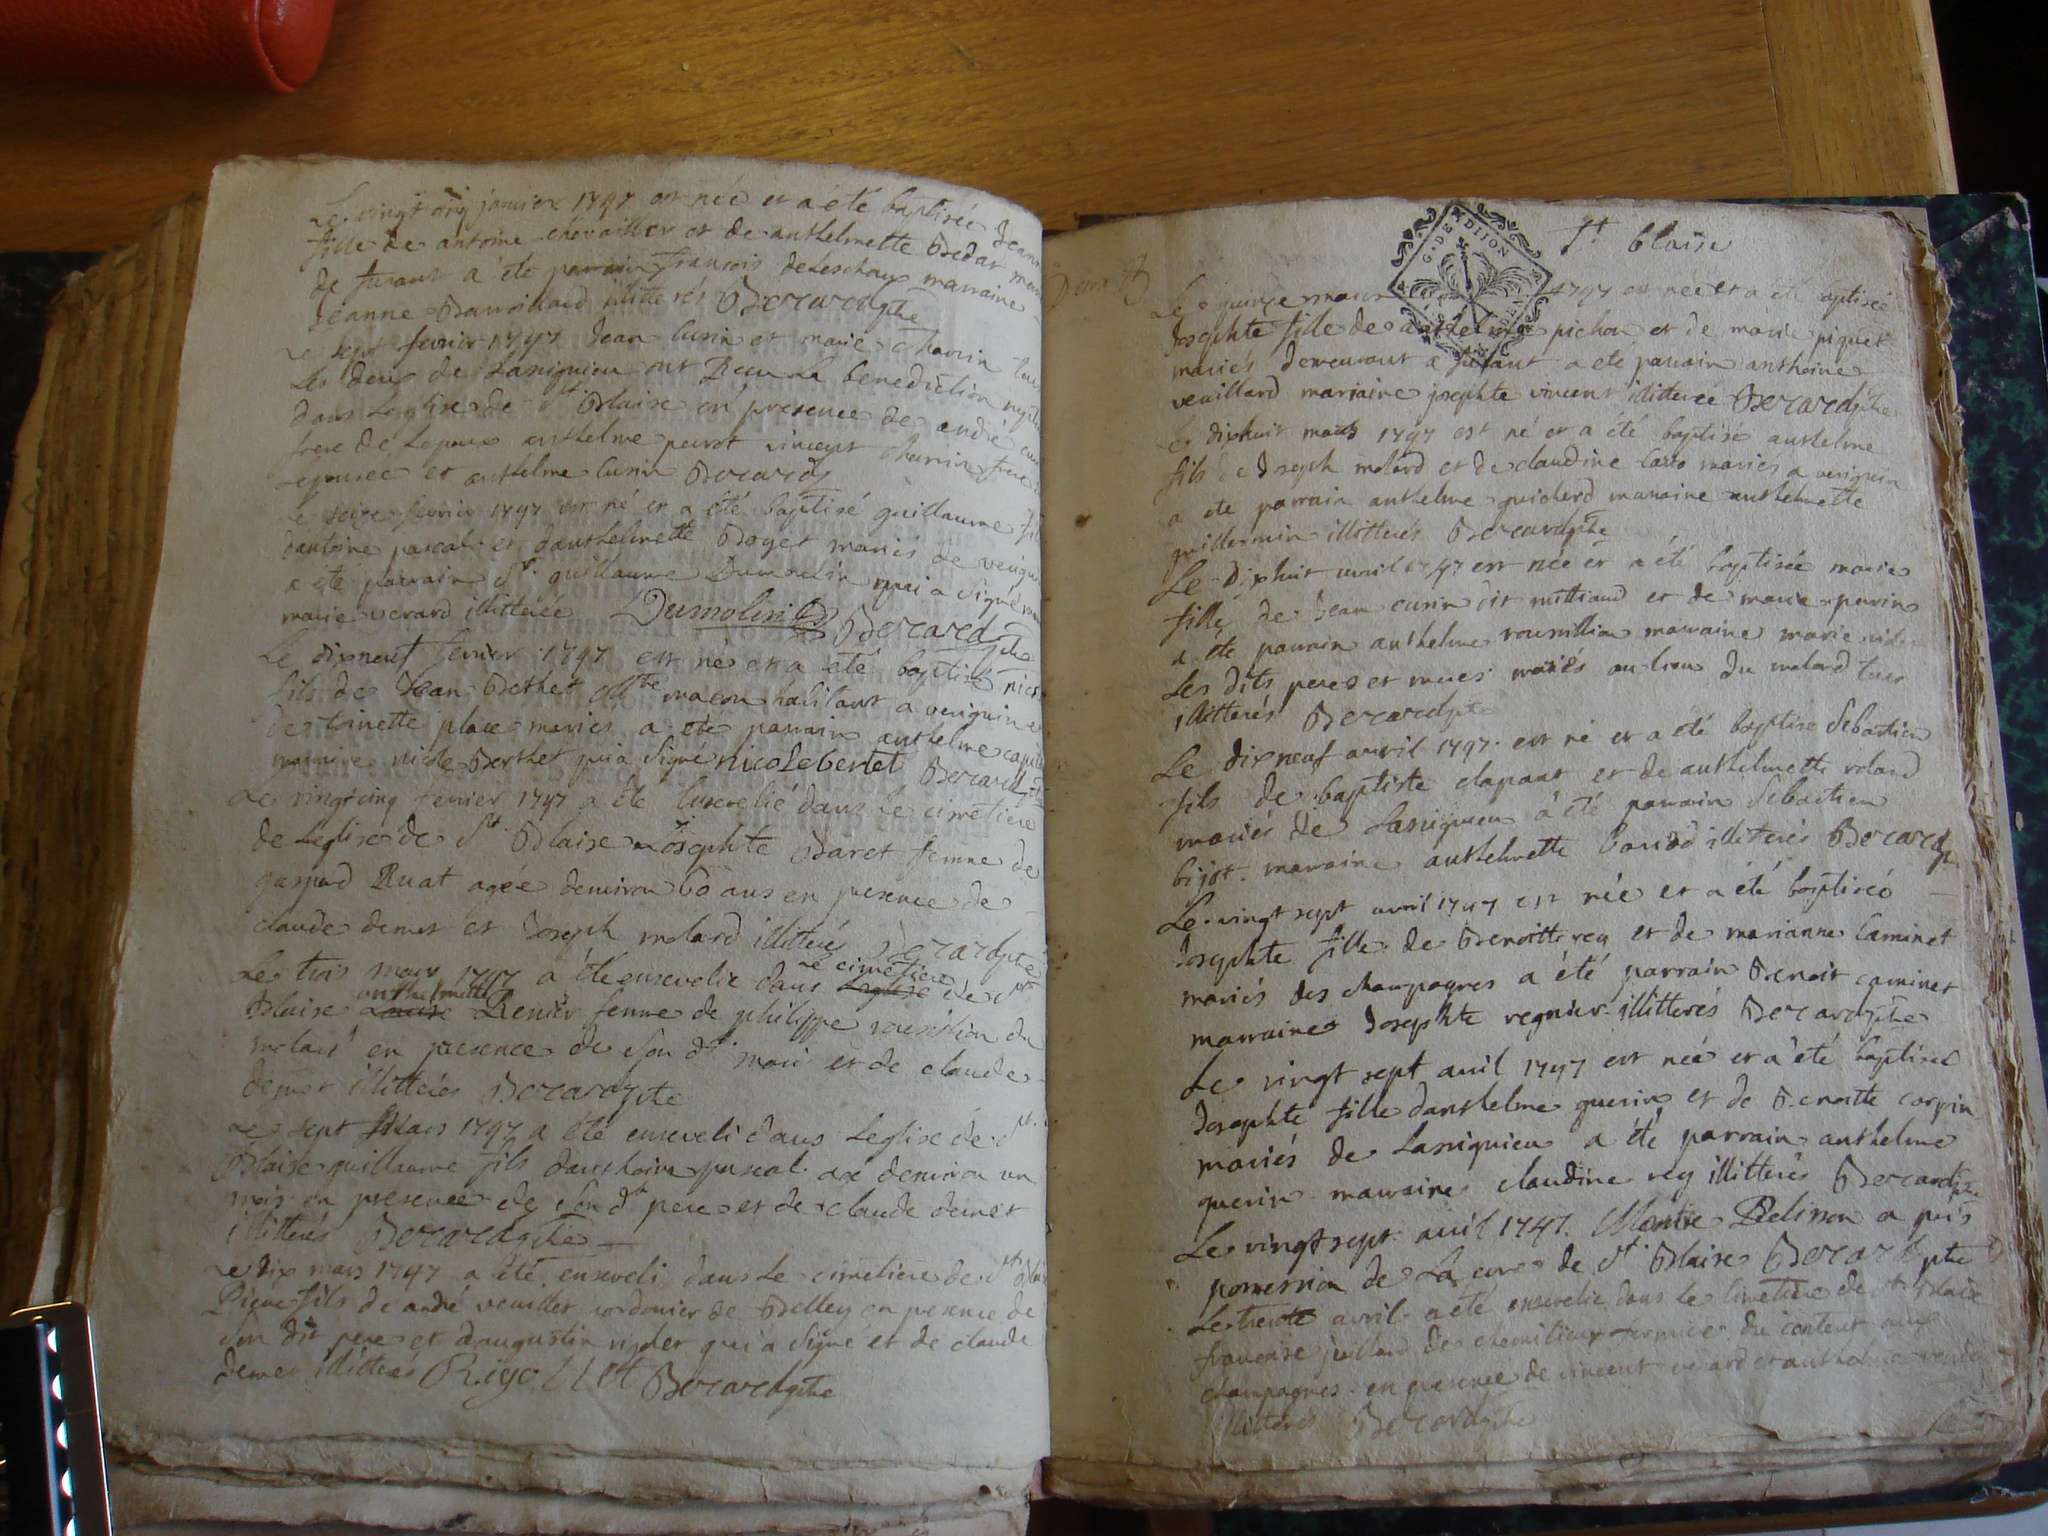 Le vingt janvier 1747 est née et a été baptisée Jeann
fille de antoine chevaillier et de anthelmette Bedat
de furant a été parrain françois deLeschaux marraine
Jeanne illitterés Berard ptre
Le sept fevrier 1747 Jean Curin et marie Charvin tou
Les deux de Lassignieu ont Recu La benediction
dans Leglise de St Blaise en presence de andré
frere de Lepoux anthelme perrot vincent Charvin frere
epousee et anthelme Curin Berard
Le seize fevrier 1747 est né et a été baptisé guillaume fil
dantoine pascal et danthelmette Boget mariés de
a été parrain Sr. guillaume Dumoulin qui a signé
marie verard illitterée Dumolin Berard ptre
Le dixneuf fevrier 1747 est né et a été baptisé
fils de Jean Bethet Mtre macon habitant a
de place mariés a été parrain anthelme
marraine nicole Berthet qui a signé nicole bertet Berard
Le vingt cinq fevrier 1747 a été Ensevelie dans le cimetiere
de Leglise de St Blaise Josephte Baret femme de
gaspard Ruat agée denviron 60 ans en presence de
claude demet et Joseph molard illitterés Berard ptre
Le trois mars 1747 a été ensevelie dans Le cimetiere de St
Blaise anthelmette Renier femme de philippe du
molard en presence de son dt mari et de claude
demet illitterés Berard ptre
Le sept Mars 1747 a été enseveli dans Leglise de St.
Blaise guillaume fils danthoine pascal agé denviron un
mois en presence de son dt pere et de claude demet
illitterés Berard ptre
Le dix mars 1747 a été enseveli dans Le cimetiere de St Blai
Pierre fils de andré veuillet cordonier de Belley en presence de
son dit pere et daugustin qui a signé et de claude
demet illitterés Berard ptre
St blaise
Le quinze mars 1747 est née et a été baptisée
G. DE DIJON
Josephte fille de anthelme pichon et de marie piquet
mariés demeurant a furant a été parrain anthoine
veuillard marraine josephte vincent illitterée Berard ptre
Le dixhuit mars 1747 est né et a été baptisé anthelme
fils de Joseph molard et de claudine mariés a
a été parrain anthelme guicherd marraine anthelmette
guillermin illitterés Berard ptre
Le dixhuit avril 1747 est née et a été baptisée marie
fille de Jean curin dit et de marie perrin
a été parrain anthelme marraine marie
Les dits peres et meres mariés au lieu du molard tous
illitterés Berard ptre
Le dixneuf avril 1747 est né et a été baptisé Sébastien
fils de baptiste clapant et de anthelmette rolard
mariés de Lassignieu a été parrain Sébastien
bijot marraine anthelmette illiterés Berard ptre
Le vingt sept avril 1747 est née et a été baptisée
Josephte fille de Benoitt rey et de marianne Caminet
mariés des champagnes a été parrain Benoit caminet
marraine Josephte regnier illitterés Berard ptre
Le vingt sept avril 1747 est née et a été baptisée
Josephte fille danthelme guerin et de Benoitte carpin
mariés de Lassignieu a été parrain anthelme
guerin marraine claudine rey illitterés Berard ptre
Le vingt sept avril 1747. Messire Pelisson a pris
possession de La cure de St. Blaise Berard ptre
Le trente avril a été ensevelie dans Le cimetiere de St Blaise
francoise juillard de chemilieu fermiere du couvent aux
champagnes en presence de vincent verard et anthelme
illitterés Berard ptre